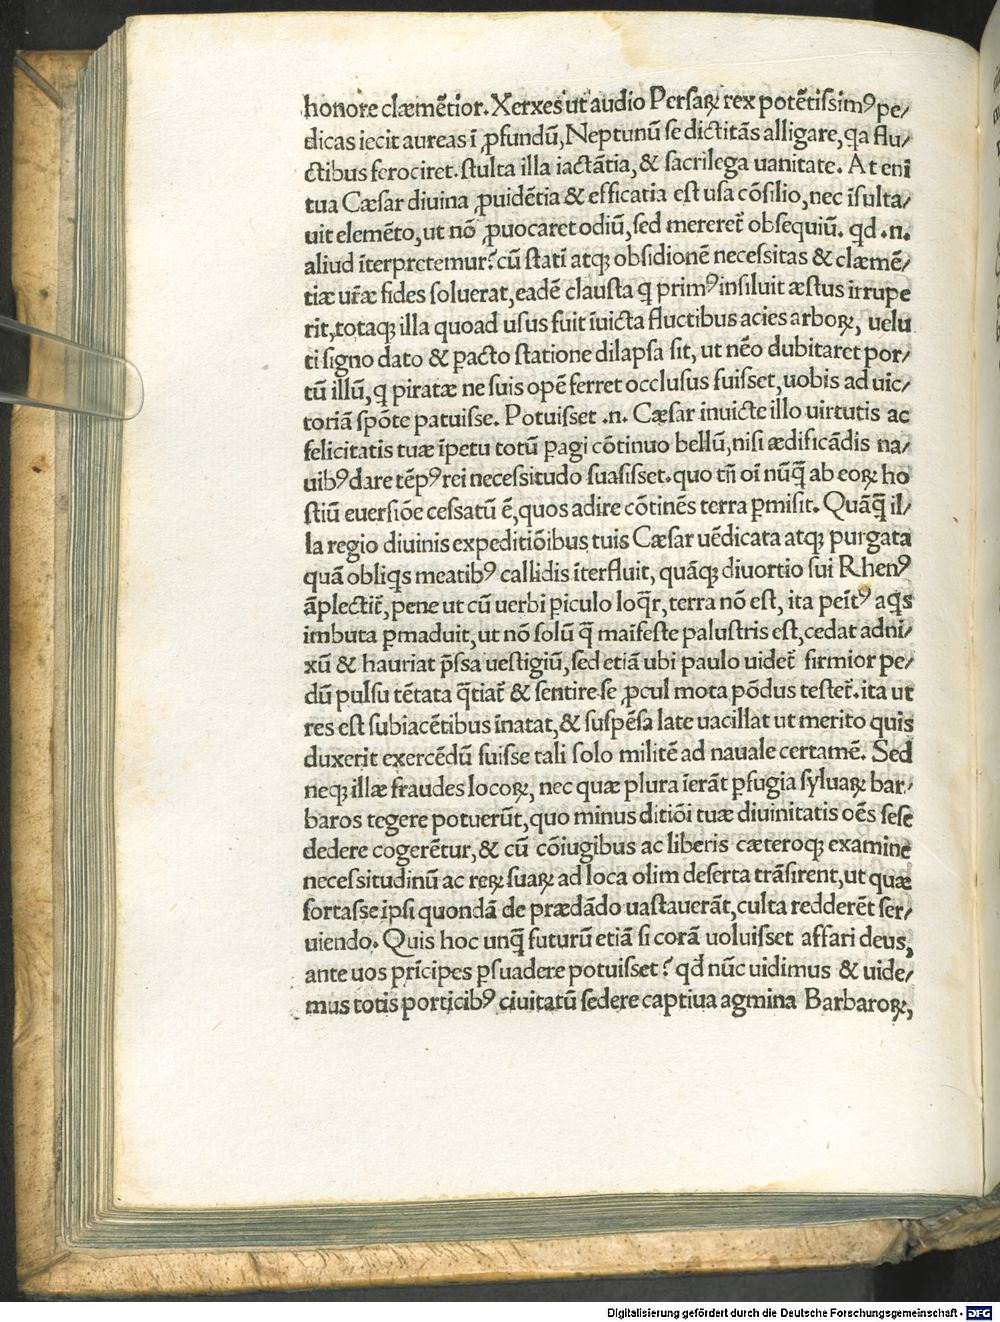 honore clæmẽtior. Xerxes ut audio Persaꝝ rex potẽtissimꝰ pe/
dicas iecit aureas ĩ ꝓfundũ, Neptunũ se dictitãs alligare, qa flu/
ctibus ferociret. stulta illa iactãtia, & sacrilega uanitate. At eni
tua Cæsar diuina ꝓuidẽtia & efficatia est usa cõsilio, nec ĩsulta/
uit elemẽto, ut nõ ꝓuocaret odiũ, sed mereret̃ obsequiũ. qd .n.
aliud ĩterpretemur? cũ stati atqꝫ obsidionẽ necessitas & clæmẽ/
tiæ ur̃æ fides soluerat, eadẽ clausta q primꝰ insiluit æstus irrupe
rit, totaqꝫ illa quoad usus fuit ĩuicta fluctibus acies arboꝝ, uelu
ti signo dato & pacto statione dilapsa sit, ut nẽo dubitaret por/
tũ illũ, q piratæ ne suis opẽ ferret occlusus fuisset, uobis ad uic/
toriã spõte patuisse. Potuisset .n. Cæsar inuicte illo uirtutis ac
felicitatis tuæ ĩpetu totũ ꝑagi cõtinuo bellũ, nisi ædificãdis na/
uibꝰ dare tẽpꝰ rei necessitudo suasisset. quo tñ oĩ nũq̃ ab eoꝝ ho
stiũ euersiõe cessatũ ẽ, quos adire cõtinẽs terra ꝑmisit. Quãq̃ il/
la regio diuinis expeditiõibus tuis Cæsar uẽdicata atqꝫ purgata
quã obliqs meatibꝰ callidis ĩterfluit, quãqꝫ diuortio sui Rhenꝰ
ãplectit̃, pene ut cũ uerbi ꝑiculo loq̃r, terra nõ est, ita peĩtꝰ aqs
imbuta ꝑmaduit, ut nõ solũ q̃ maĩfeste palustris est, cedat adni/
xũ & hauriat p̃ssa uestigiũ, sed etiã ubi paulo uidet̃ firmior pe/
dũ pulsu tẽtata q̃tiat̃ & sentire se ꝓcul mota põdus testet̃. ita ut
res est subiacẽtibus ĩnatat, & suspẽsa late uacillat ut merito quis
duxerit exercẽdũ fuisse tali solo militẽ ad nauale certamẽ. Sed
neqꝫ illæ fraudes locoꝝ, nec quæ plura ĩerãt ꝑfugia syluaꝝ bar/
baros tegere potuerũt, quo minus ditiõi tuæ diuinitatis oẽs sese
dedere cogerẽtur, & cũ cõiugibus ac liberis cæteroqꝫ examine
necessitudinũ ac reꝝ suaꝝ ad loca olim deserta trãsirent, ut quæ
fortasse ipsi quondã de prædãdo uastauerãt, culta redderẽt ser/
uiendo. Quis hoc unq̃ futurũ etiã si corã uoluisset affari deus,
ante uos prĩcipes ꝑsuadere potuisset? qd nũc uidimus & uide/
mus totis porticibꝰ ciuitatũ sedere captiua agmina Barbaroꝝ,
Digitalisierung gefördert durch die Deutsche Forschungsgemeinschaft - DFG